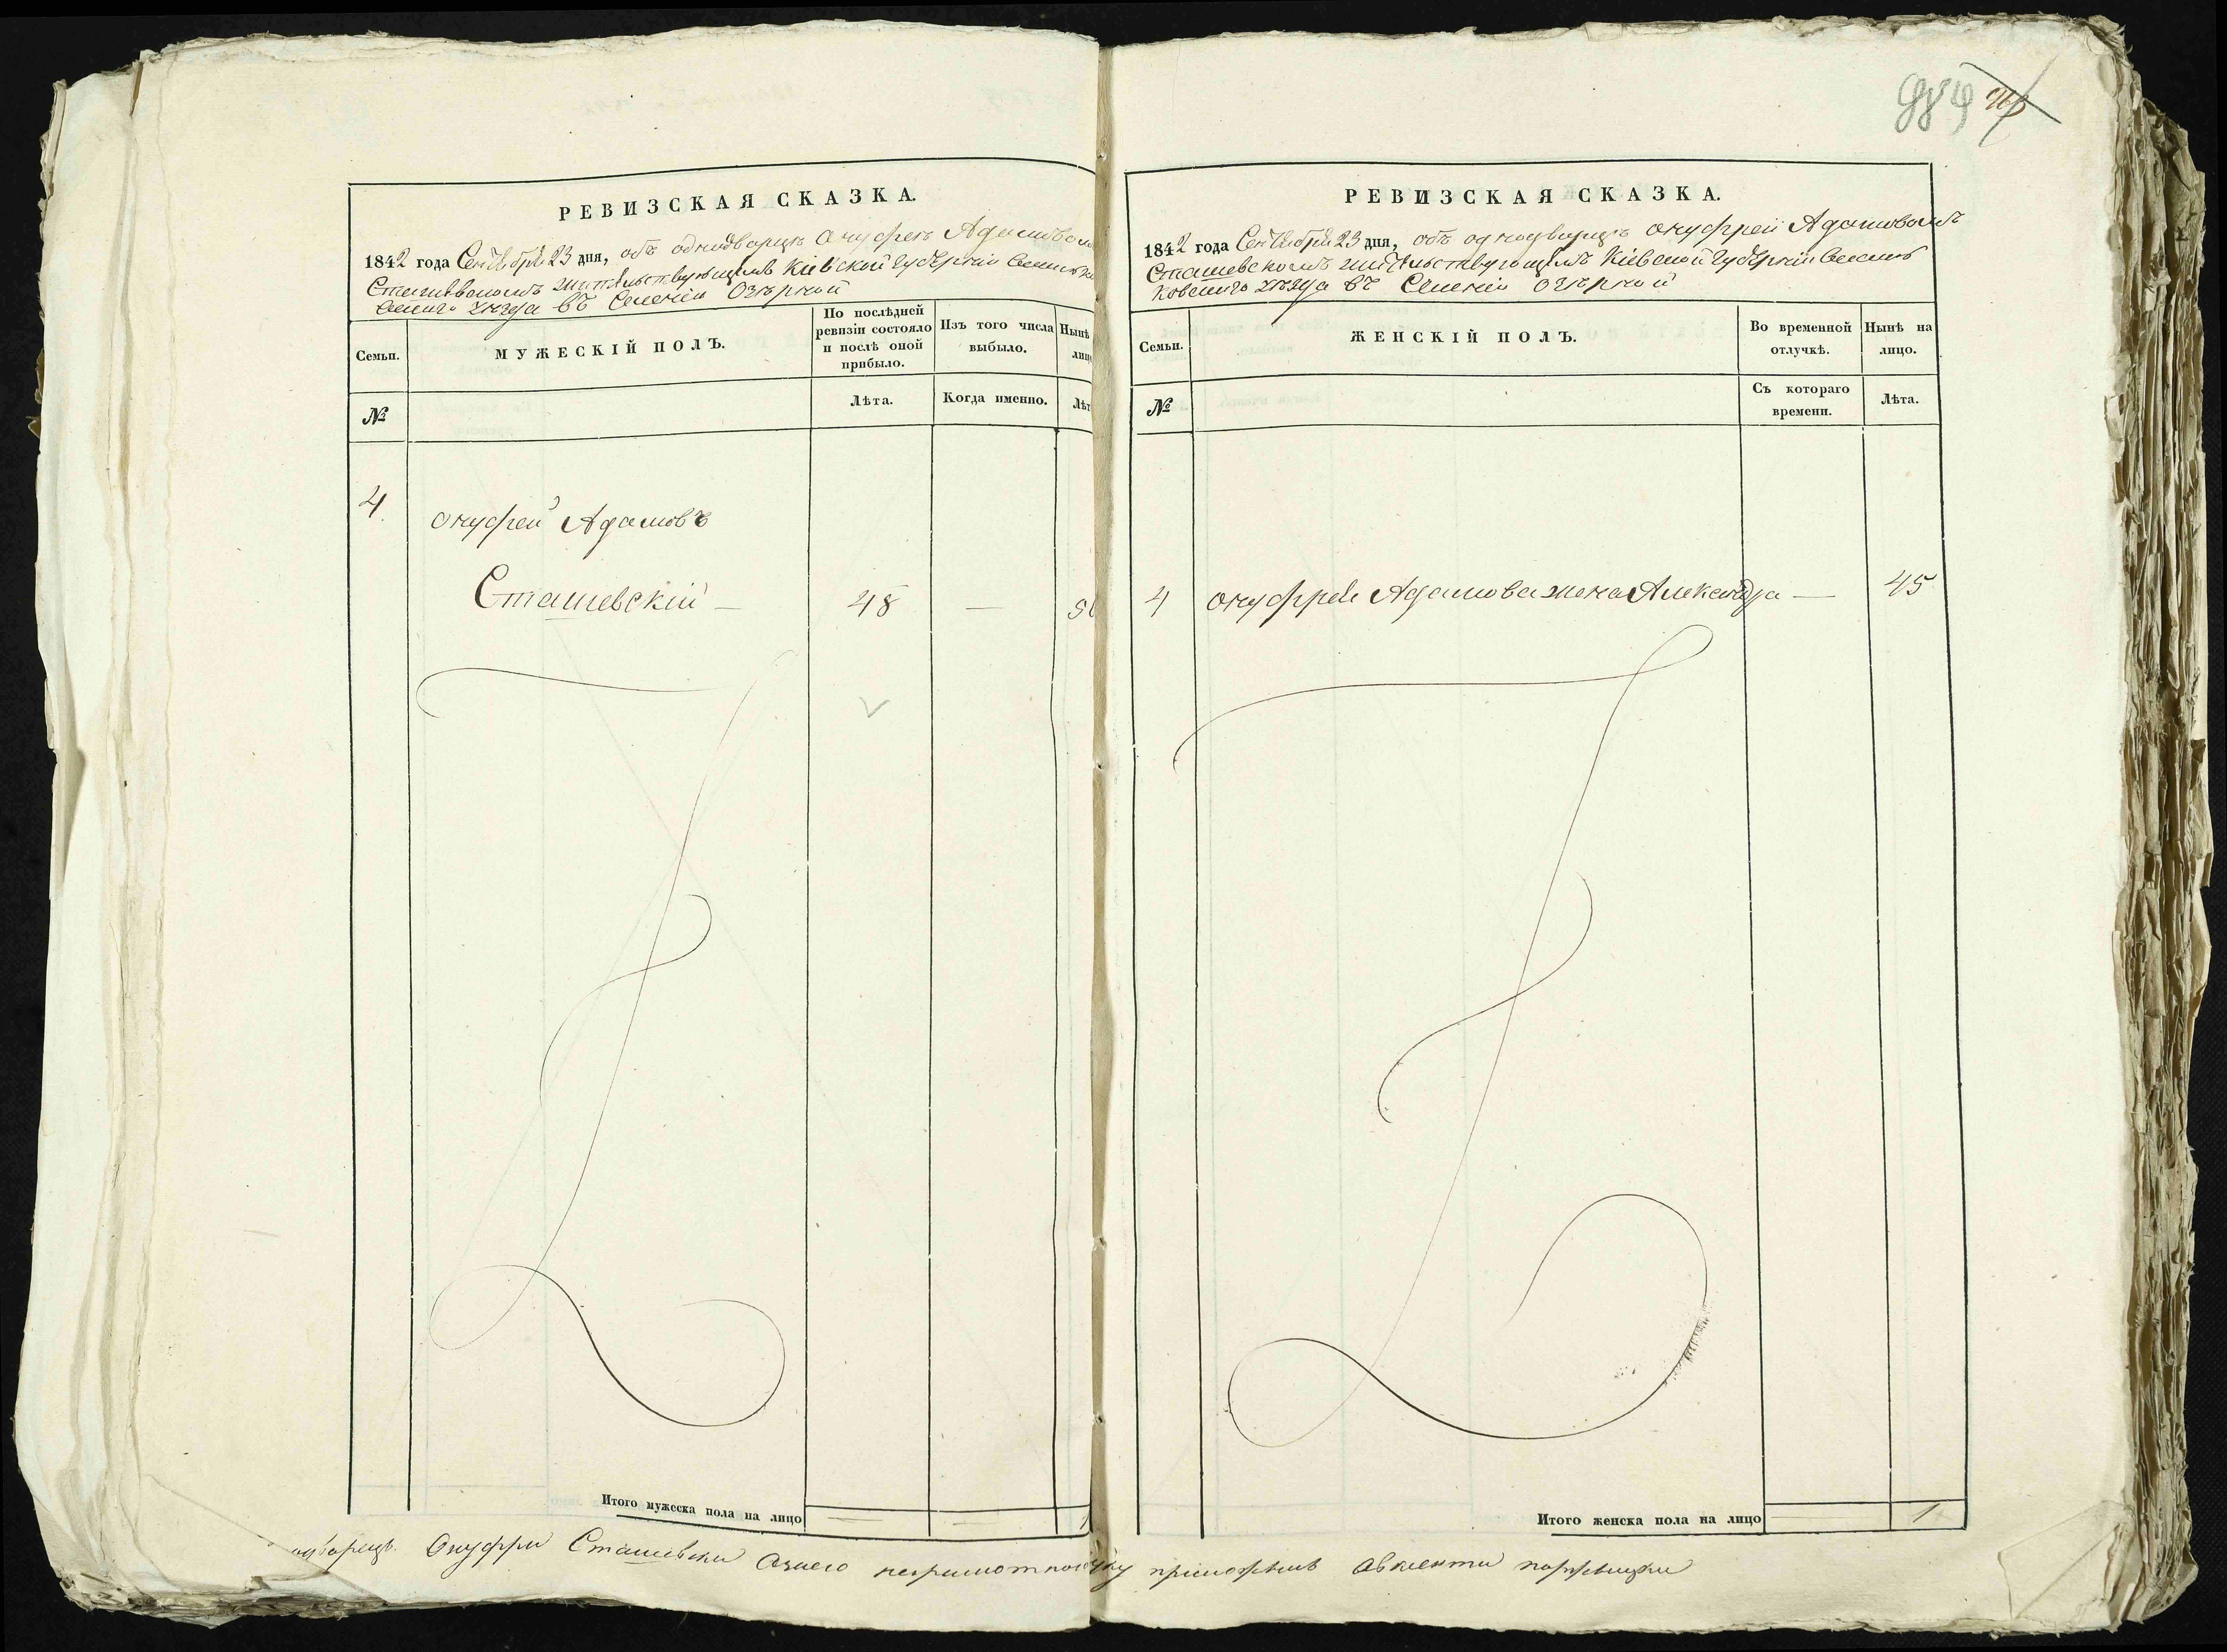 РЕВИЗСКАЯ СКАЗКА.
1842 года Сентября 23 дня, объ однодворцѣ Онуфреѣ Адамово
Сташевскомъ жительствующемъ Кіевской Губерніи
уѣзда въ Селеніи Озѣрной
Семьи.
МУЖЕСКІЙ ПОЛЪ.
По послѣдней
ревизіи состояло
и послѣ оной
прибыло.
Изъ того числа
выбыло.
Нынѣ
лицо
№
Лѣта.
Когда именно.
Лѣт
4
Онуфрей Адамовъ
Сташевскій — 48 —
Итого мужеска пола на лицо — — 1
984
РЕВИЗСКАЯ СКАЗКА.
1842 года Сентября 23 дня, объ однодворцѣ Онуфреи Адамовомъ
Сташевскомъ жительствующемъ Кіевской Губерніи Василь
ковскаго уѣзда въ Селеніи Озѣрной
Семьи.
ЖЕНСКІЙ ПОЛЪ.
Во временной
отлучкѣ.
Нынѣ на
лицо.
№
Съ котораго
времени.
Лѣта.
4 Онуфрея Адамова жена Александра — 45
Итого женска пола на лицо — 1
Онуфри Сташевски неграмотного руку приложилъ